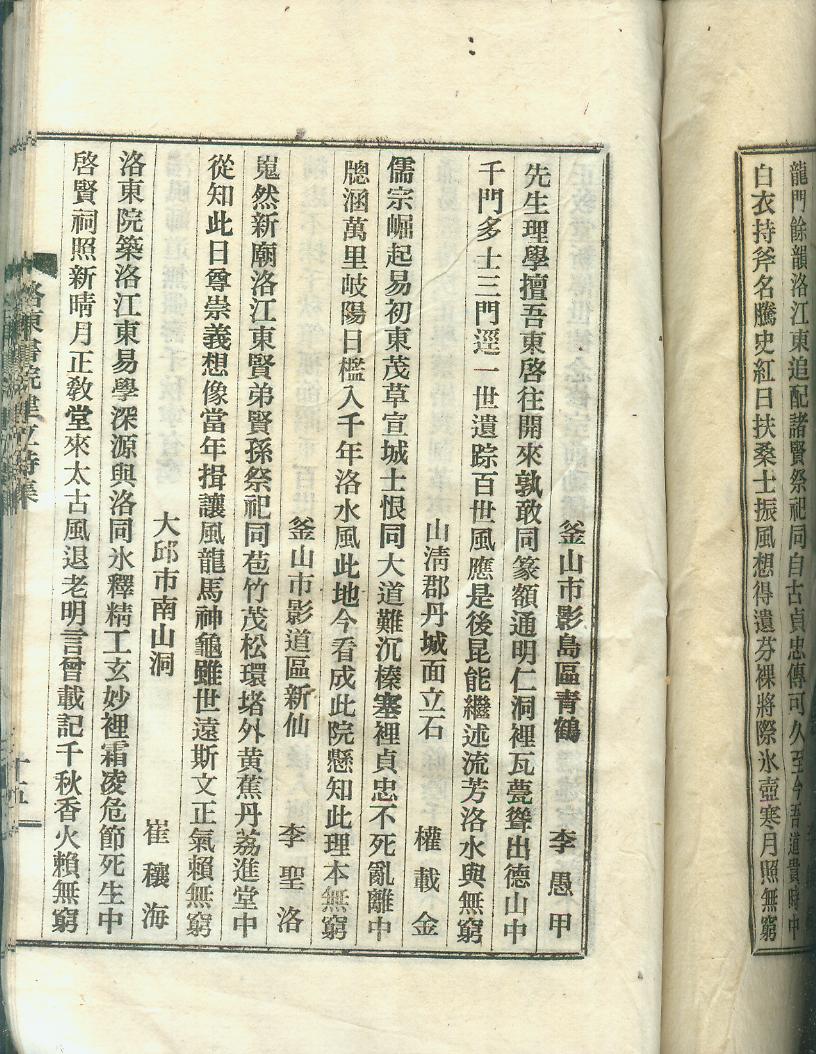 龍門餘韻洛江東追配諸賢祭祀同自古貞忠傳可久至今吾道貴時中
白衣持斧名騰史紅日扶桑士振風想得遺芬裸將際氷壺寒月照無窮
釜山市影島區青鶴 李愚甲
先生理學擅吾東啓往開來孰敢同篆額通明仁洞裡瓦甍聳出德山中
千門多士三門逕一世遺踪百世風應是後昆能繼述流芳洛水與無窮
山淸郡丹城面立石 權載金
儒宗崛起易初東茂草宣城士恨同大道難沉榛塞裡貞忠不死亂離中
牕涵萬里岐陽日檻入千年洛水風此地今看成此院懸知此理本無窮
釜山市影道區新仙 李聖洛
嵬然新廟洛江東賢弟賢孫祭祀同苞竹茂松環堵外黄蕉丹荔進堂中
從知此日尊崇義想像當年揖讓風龍馬神龜雖世遠斯文正氣賴無窮
大邱市南山洞 崔穰海
洛東院築洛江東易學深源與洛同氷釋精工玄妙裡霜凌危節死生中
啓賢祠照新晴月正敎堂來太古風退老明言曾載記千秋香火賴無窮
洛東書院建立詩集 十五